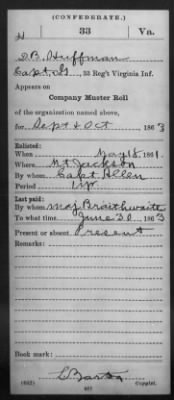 (CONFEDERATE.)
H 33 Va.
D.B. Huffman
Capt, Co. G, 33 Reg't Virginia Inf.
Appears on
Company Muster Roll
of the organization named above,
for Sept & Oct, 1863
Enlisted:
When May 18, 1861.
Where Mt Jackson
By whom Capt Allen
Period 1 yr
Last paid:
By whom Maj Braithwaite
To what time June 30 1863
Present or absent Present
Remarks:
Book mark:
(642) Copyist.